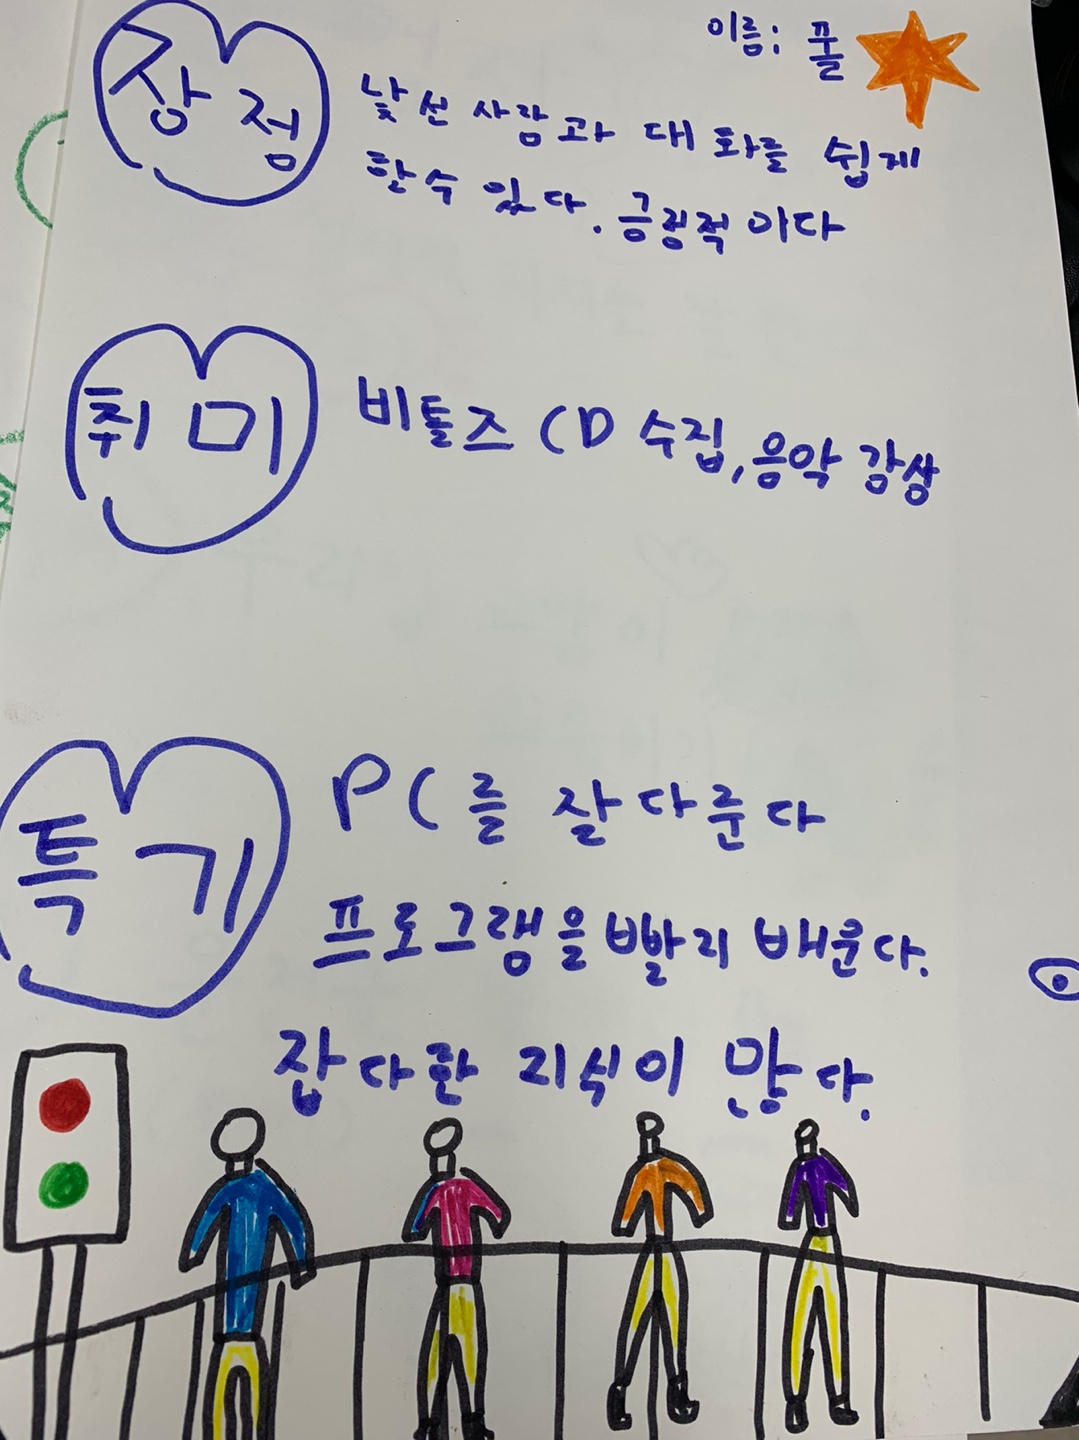 이름: 폴
장점
낯선 사람과 대화를 쉽게
할수 있다. 긍정적이다
취미
비틀즈 CD 수집, 음악 감상
특기
PC를 잘 다룬다
프로그램을 빨리 배운다.
잡다한 지식이 많다.